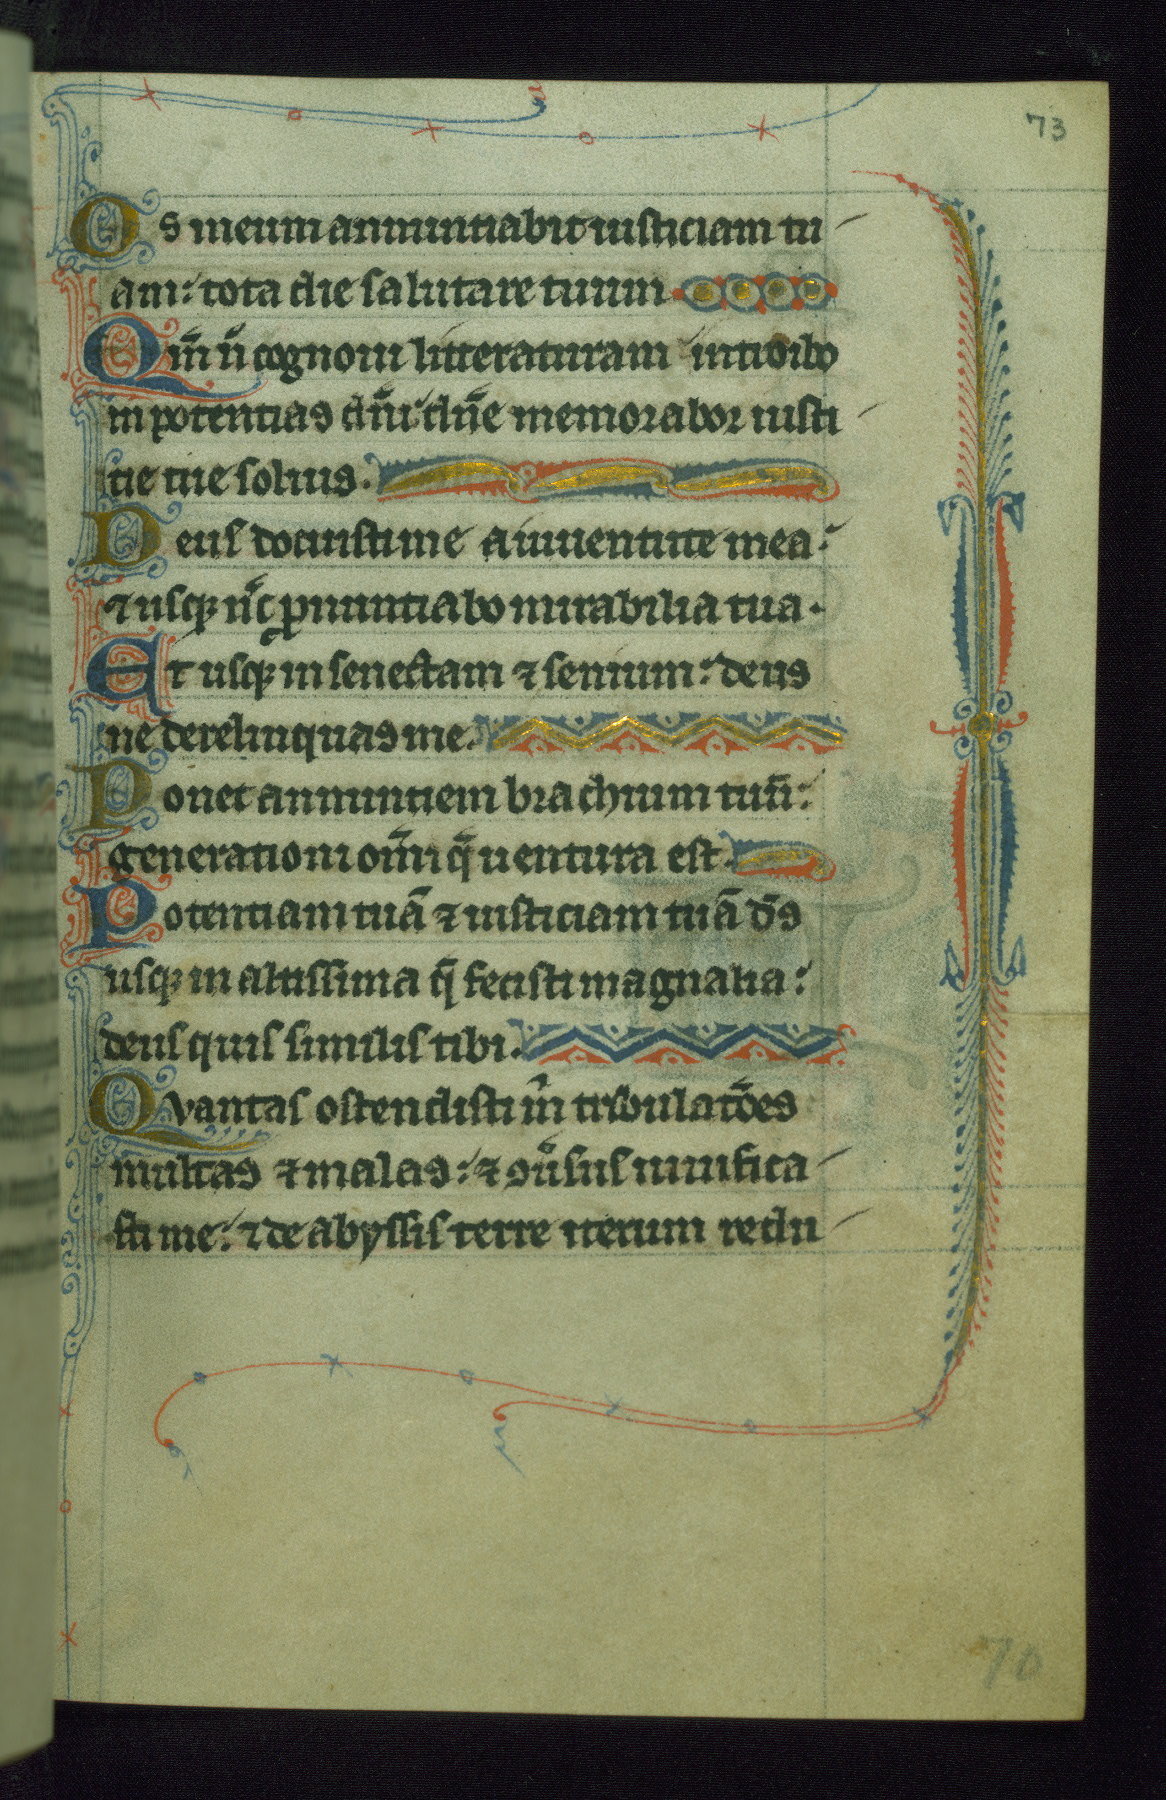 73
Os meum annuntiabit iusticiam tu
am: tota die salutare tuum.
Qm̄ nͦ cognoui litteraturam introibo
in potentias dn̄i: dn̄e memorabor iusti
tie tue solius.
Deus docuisti me a iuuentute mea:
⁊ usq; nc̄ ꝓnuntiabo mirabilia tua.
Et usq; in senectam ⁊ senium: deus
ne derelinquas me.
Donec annuntiem brachium tuū:
generationi om̄i q̄ uentura est.
Potentiam tuā ⁊ iusticiam tuā ds̄
usq; in altissima q̄ fecisti magnalia:
deus quis similis tibi.
Qvantas ostendisti m̄ tribulatōes
multas ⁊ malas: ⁊ ꝯuͦsus uiuifica
sti me: ⁊ de abyssis terre iterum redu
70